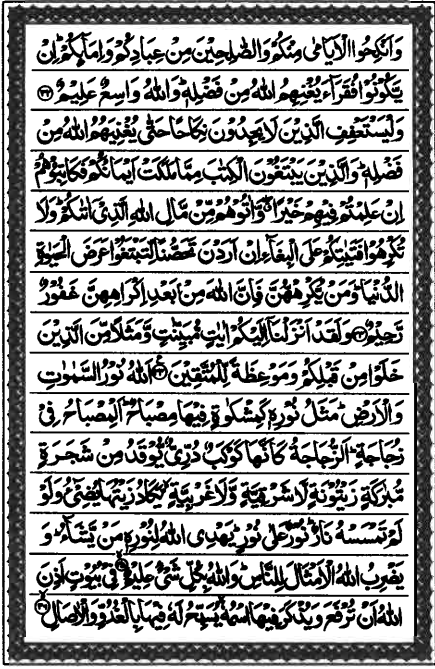 وَاَنْكِحُوا الْاَيَامٰى مِنْكُمْ وَالصّٰلِحِيْنَ مِنْ عِبَادِكُمْ وَاِمَآئِكُمْ ؕ اِنْ
يَّكُوْنُوْا فُقَرَآءَ يُغْنِهِمُ اللّٰهُ مِنْ فَضْلِهٖ ؕ وَاللّٰهُ وَاسِعٌ عَلِيْمٌ ﴿۳۲﴾
وَلْيَسْتَعْفِفِ الَّذِيْنَ لَا يَجِدُوْنَ نِكَاحًا حَتّٰى يُغْنِيَهُمُ اللّٰهُ مِنْ
فَضْلِهٖ ؕ وَالَّذِيْنَ يَبْتَغُوْنَ الْكِتٰبَ مِمَّا مَلَكَتْ اَيْمَانُكُمْ فَكَاتِبُوْهُمْ
اِنْ عَلِمْتُمْ فِيْهِمْ خَيْرًا ۖ وَّاٰتُوْهُمْ مِّنْ مَّالِ اللّٰهِ الَّذِيْۤ اٰتٰىكُمْ ؕ وَلَا
تُكْرِهُوْا فَتَيٰتِكُمْ عَلَى الْبِغَآءِ اِنْ اَرَدْنَ تَحَصُّنًا لِّتَبْتَغُوْا عَرَضَ الْحَيٰوةِ
الدُّنْيَا ؕ وَمَنْ يُّكْرِهْهُّنَّ فَاِنَّ اللّٰهَ مِنْۢ بَعْدِ اِكْرَاهِهِنَّ غَفُوْرٌ
رَّحِيْمٌ ﴿۳۳﴾ وَلَقَدْ اَنْزَلْنَاۤ اِلَيْكُمْ اٰيٰتٍ مُّبَيِّنٰتٍ وَّمَثَلًا مِّنَ الَّذِيْنَ
خَلَوْا مِنْ قَبْلِكُمْ وَمَوْعِظَةً لِّلْمُتَّقِيْنَ ﴿۳۴﴾ اَللّٰهُ نُوْرُ السَّمٰوٰتِ
وَالْاَرْضِ ؕ مَثَلُ نُوْرِهٖ كَمِشْكٰوةٍ فِيْهَا مِصْبَاحٌ ؕ اَلْمِصْبَاحُ فِيْ
زُجَاجَةٍ ؕ اَلزُّجَاجَةُ كَاَنَّهَا كَوْكَبٌ دُرِّيٌّ يُّوْقَدُ مِنْ شَجَرَةٍ
مُّبٰرَكَةٍ زَيْتُوْنَةٍ لَّا شَرْقِيَّةٍ وَّلَا غَرْبِيَّةٍ ۙ يَّكَادُ زَيْتُهَا يُضِيْٓءُ وَلَوْ
لَمْ تَمْسَسْهُ نَارٌ ؕ نُوْرٌ عَلٰى نُوْرٍ ؕ يَهْدِي اللّٰهُ لِنُوْرِهٖ مَنْ يَّشَآءُ ؕ وَ
يَضْرِبُ اللّٰهُ الْاَمْثَالَ لِلنَّاسِ ؕ وَاللّٰهُ بِكُلِّ شَيْءٍ عَلِيْمٌ ﴿۳۵﴾ فِيْ بُيُوْتٍ اَذِنَ
اللّٰهُ اَنْ تُرْفَعَ وَيُذْكَرَ فِيْهَا اسْمُهٗ ۙ يُسَبِّحُ لَهٗ فِيْهَا بِالْغُدُوِّ وَالْاٰصَالِ ﴿۳۶﴾